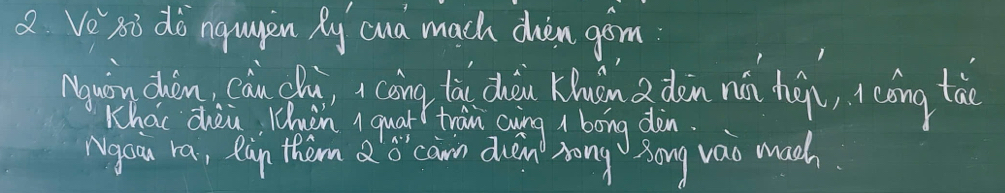 2. Vẽ sơ đồ nguyên lý của mạch điện gồm:
Nguồn điện, cầu chì, 1 công tắc điều khiển 2 đèn nối tiếp, 1 công tắc
khác điều khiển 1 quạt trần cùng 1 bóng đèn.
Ngoài ra, lắp thêm 2 ổ cắm điện song song vào mạch.